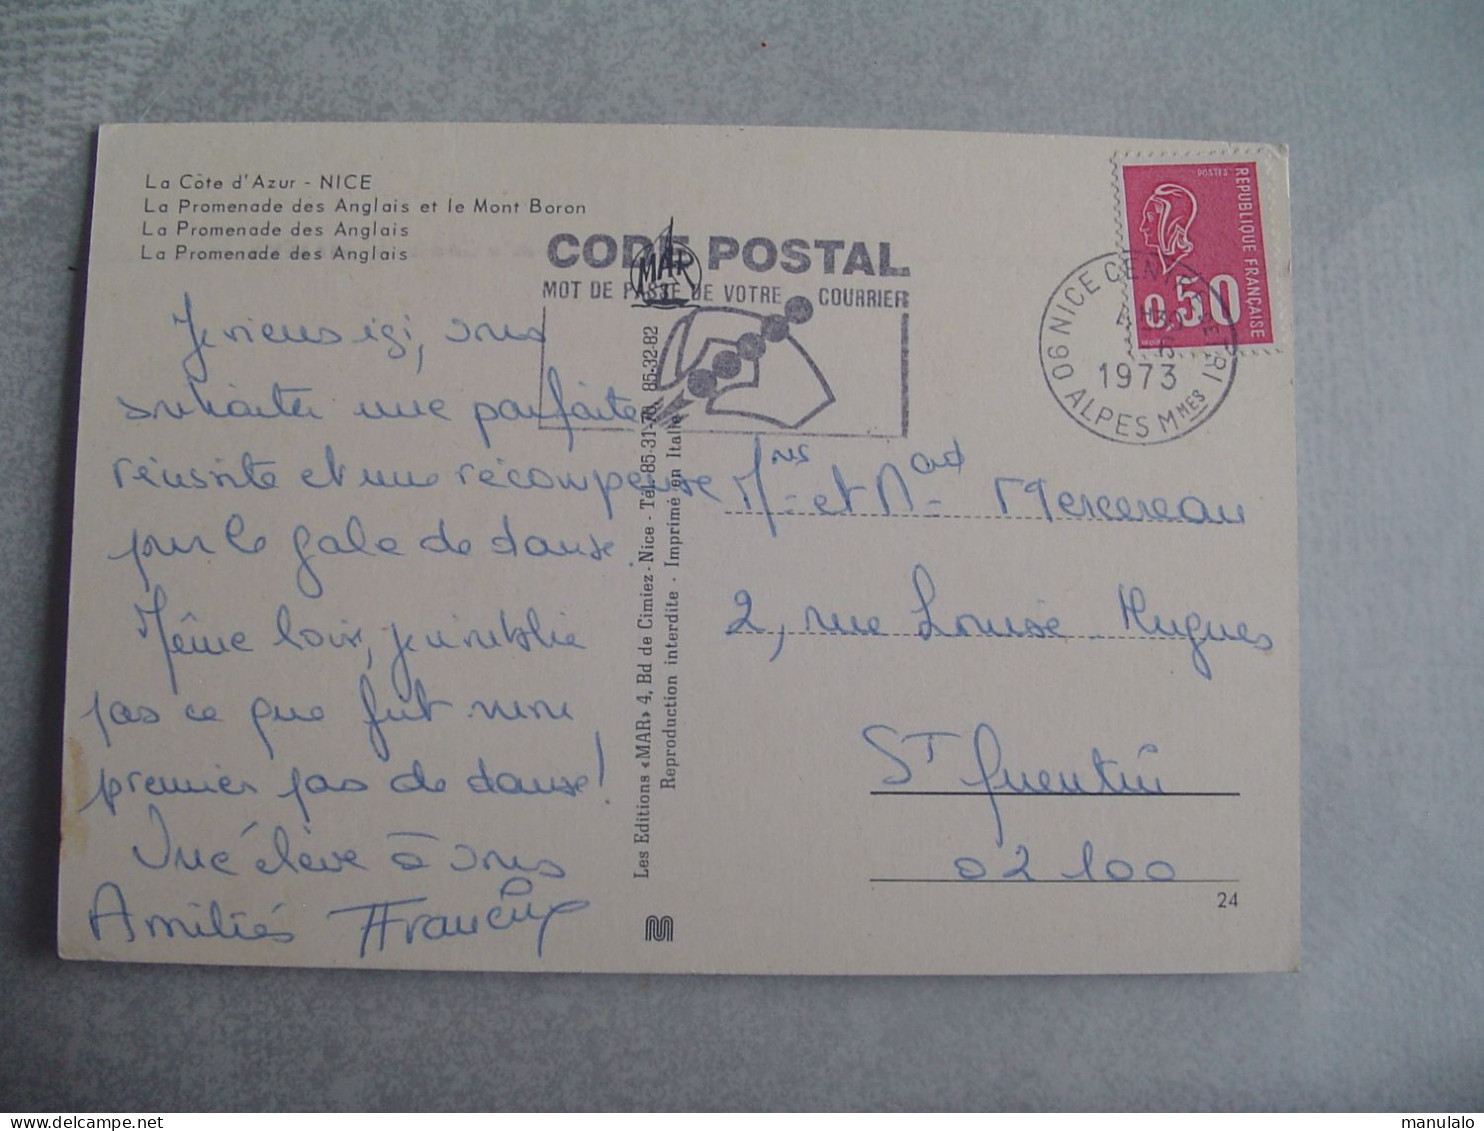 La Côte d'Azur - NICE
La Promenade des Anglais et le Mont Boron
La Promenade des Anglais
La Promenade des Anglais
CODE POSTAL
MOT DE PASSE DE VOTRE COURRIER
MAR
POSTES
REPUBLIQUE FRANÇAISE
0,50
06 NICE CENTRE
1973
ALPES Mmes
Je viens ici, vous
souhaiter une parfaite
réussite et une récompense
pour le gala de danse.
Même loin, je n'oublie
pas ce que fut mon
premier pas de danse!
Une élève à vous
Amitiés
Les Editions «MAR» 4, Bd de Cimiez - Nice - Tél. 85-31-70 85-32-82
Reproduction interdite - Imprimé en Italie
et Mercereau
2, rue Louise Hugues
St Quentin
02100
24
manulalo